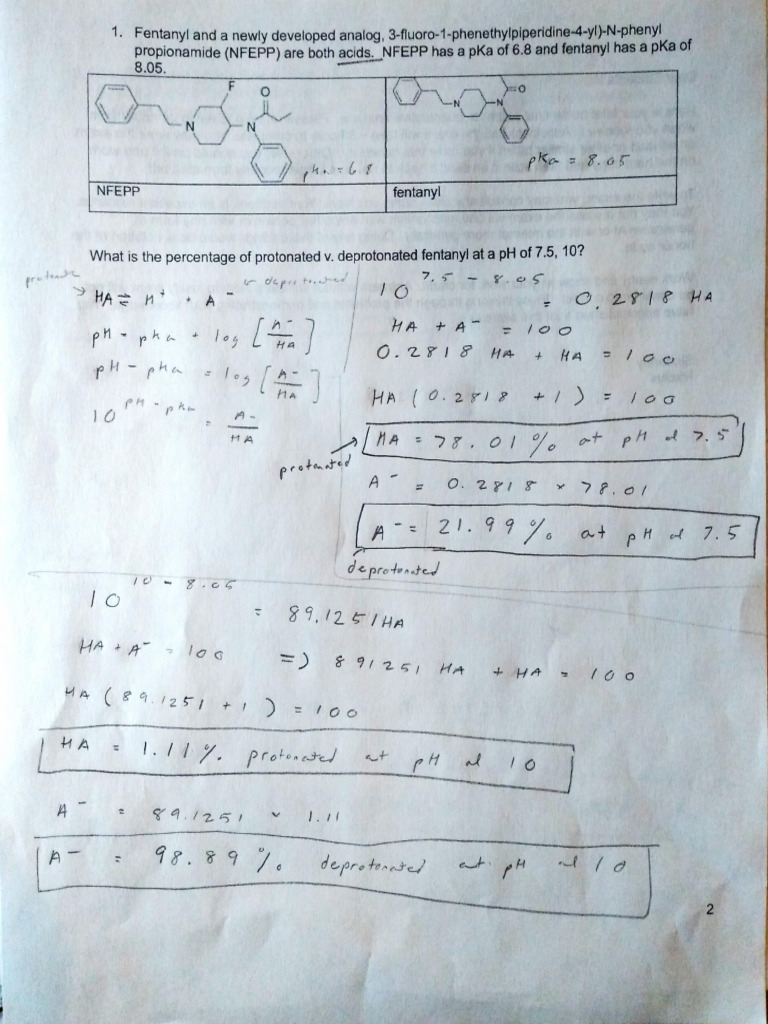 1. Fentanyl and a newly developed analog, 3-fluoro-1-phenethylpiperidine-4-yl)-N-phenyl
propionamide (NFEPP) are both acids. NFEPP has a pKa of 6.8 and fentanyl has a pKa of
8.05.
F
O
N
N
pka = 6.8
O
N
N
pKa = 8.05
NFEPP
fentanyl
What is the percentage of protonated v. deprotonated fentanyl at a pH of 7.5, 10?
deprotonated
HA ⇌ H+ + A-
pH = pka + log [A-/HA]
pH - pka = log [A-/HA]
10^pH - pka = A-/HA
10^7.5 - 8.05 = 0.2818 HA
HA + A- = 100
0.2818 HA + HA = 100
HA (0.2818 + 1) = 100
HA = 78.01% at pH of 7.5
protonated
A- = 0.2818 × 78.01
A- = 21.99% at pH of 7.5
deprotonated
10^10 - 8.05 = 89.1251 HA
HA + A- = 100 => 891251 HA + HA = 100
HA (89.1251 + 1) = 100
HA = 1.11% protonated at pH of 10
A- = 89.1251 × 1.11
A- = 98.89% deprotonated at pH of 10
2